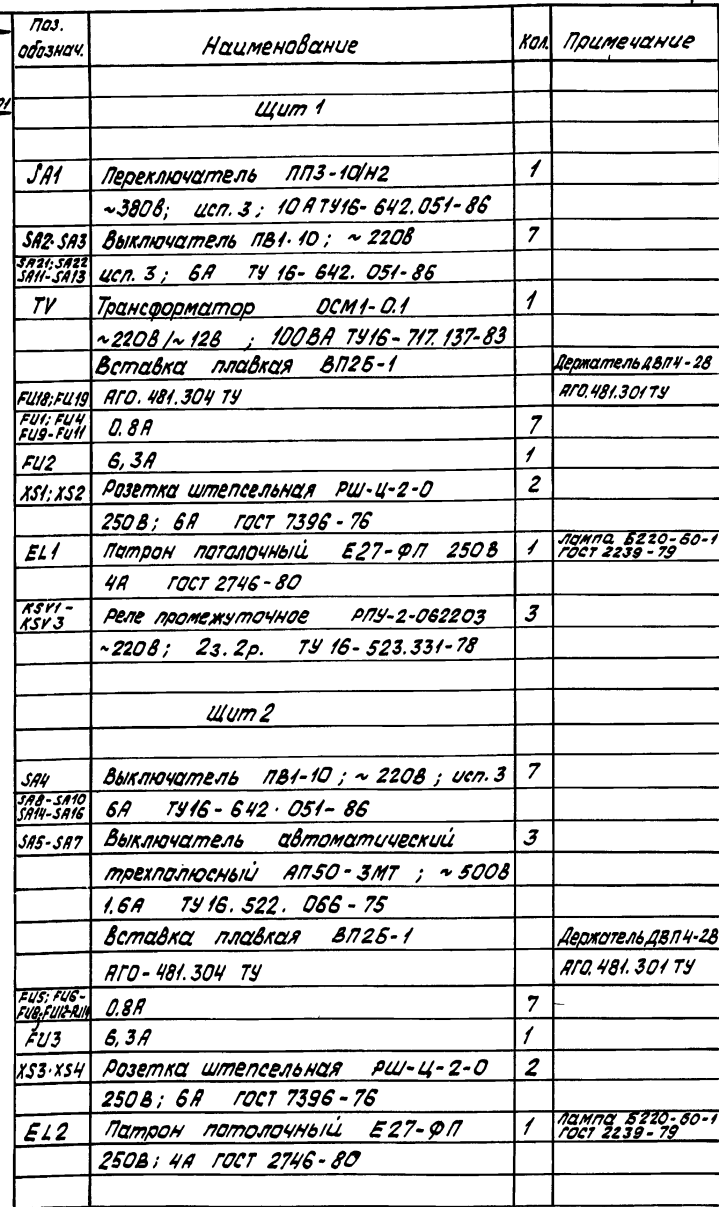 Поз. обознач. Наименование Кол. Примечание
Щит 1
SA1 Переключатель ПП3-10/Н2 1
~380В; исп. 3; 10А ТУ16-642.051-86
SA2-SA3 Выключатель ПВ1-10; ~220В 7
SA21; SA22
SA11-SA13 исп. 3; 6А ТУ 16-642.051-86
TV Трансформатор ОСМ1-0.1 1
~220В/~12В; 100ВА ТУ16-717.137-83
Вставка плавкая ВП2Б-1 Держатель ДВП4-2В
FU18; FU19 АГО.481.304 ТУ АГО.481.301 ТУ
FU1; FU4
FU9-FU11 0.8А 7
FU2 6,3А 1
XS1; XS2 Розетка штепсельная РШ-Ц-2-0 2
250В; 6А ГОСТ 7396-76
EL1 Патрон поталочный Е27-ФП 250В 1 Лампа Б220-60-1
4А ГОСТ 2746-80 ГОСТ 2239-79
KSV1-
KSV3 Реле промежуточное РПУ-2-062203 3
~220В; 2з. 2р. ТУ 16-523.331-78
Щит 2
SA4 Выключатель ПВ1-10; ~220В; исп. 3 7
SA8-SA10
SA14-SA16 6А ТУ16-642.051-86
SA5-SA7 Выключатель автоматический 3
трехпалюсный АП50-3МТ; ~500В
1.6А ТУ 16.522.066-75
Вставка плавкая ВП2Б-1 Держатель ДВП4-2В
АГО-481.304 ТУ АГО.481.301 ТУ
FU5; FU6-
FU8; FU12-FU14 0.8А 7
FU3 6,3А 1
XS3-XS4 Розетка штепсельная РШ-Ц-2-0 2
250В; 6А ГОСТ 7396-76
EL2 Патрон потолочный Е27-ФП 1 Лампа Б220-60-1
250В; 4А ГОСТ 2746-80 ГОСТ 2239-79